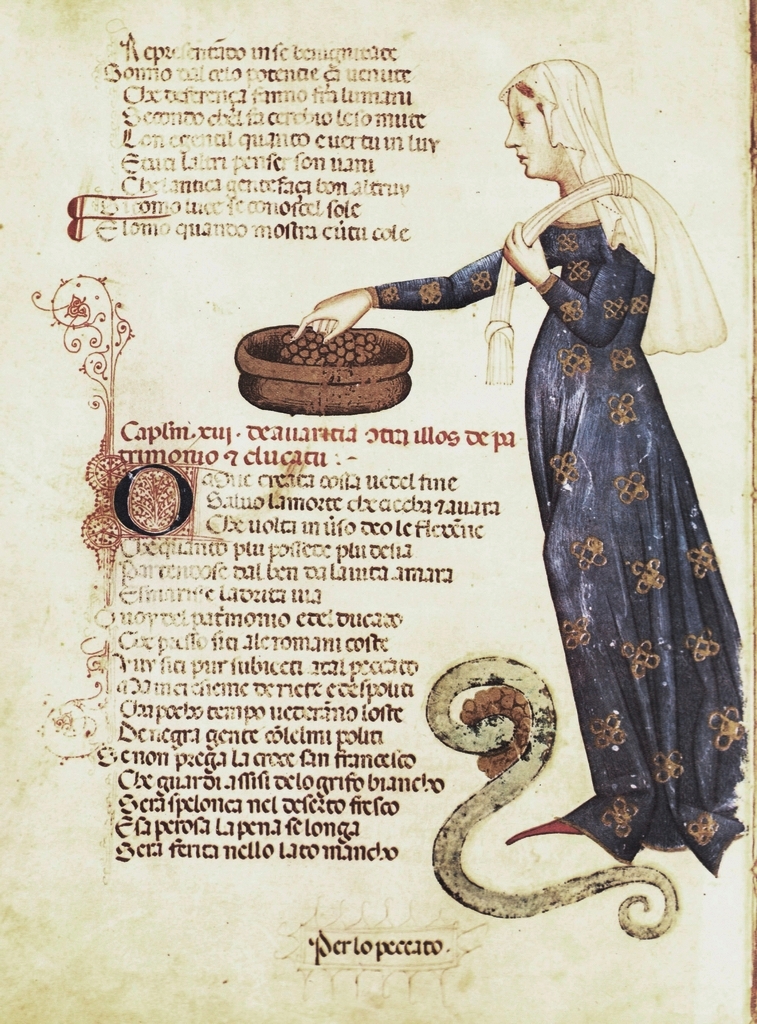 Representādo in se benignitate
Sonno dal celo potentie ça uenute
Che deferença fanno fra lumani
Secondo chel fa cerchio loro mute
Con egual quanto e uertu in luy
E tuti laltri penser son uani
Che lantica gente façea bon altruy
Sicomo luce se conoscel sole
E lomo quando mostra cūtu cole
Caplm. xvi. de auaritia ⁊ tri illos de pa
trimonio ⁊ ducatu :-
One creata cossa uedel fine
Saluo lamorte che ciecha ⁊ auara
Che uolta in uso deo le
Che quanto piu possede piu desia
Partendose dal ben da lauita amara
E smarise ladrita uia
O uoy del patrimonio etel ducato
Che presso siti ale romani coste
Vuy siti pur subiecti atal peccato
Damei insieme de riete e de spoliti
Cha pocho tempo uederāno loste
De negra gente cō lelmi politi
Se non prega la croce san francesco
Che guardi assisi delo grifo biancho
Serà spelonca nel deserto fresco
E sa perosa la pena se longa
Serà ferita nello lato mancho
Per lo peccato.